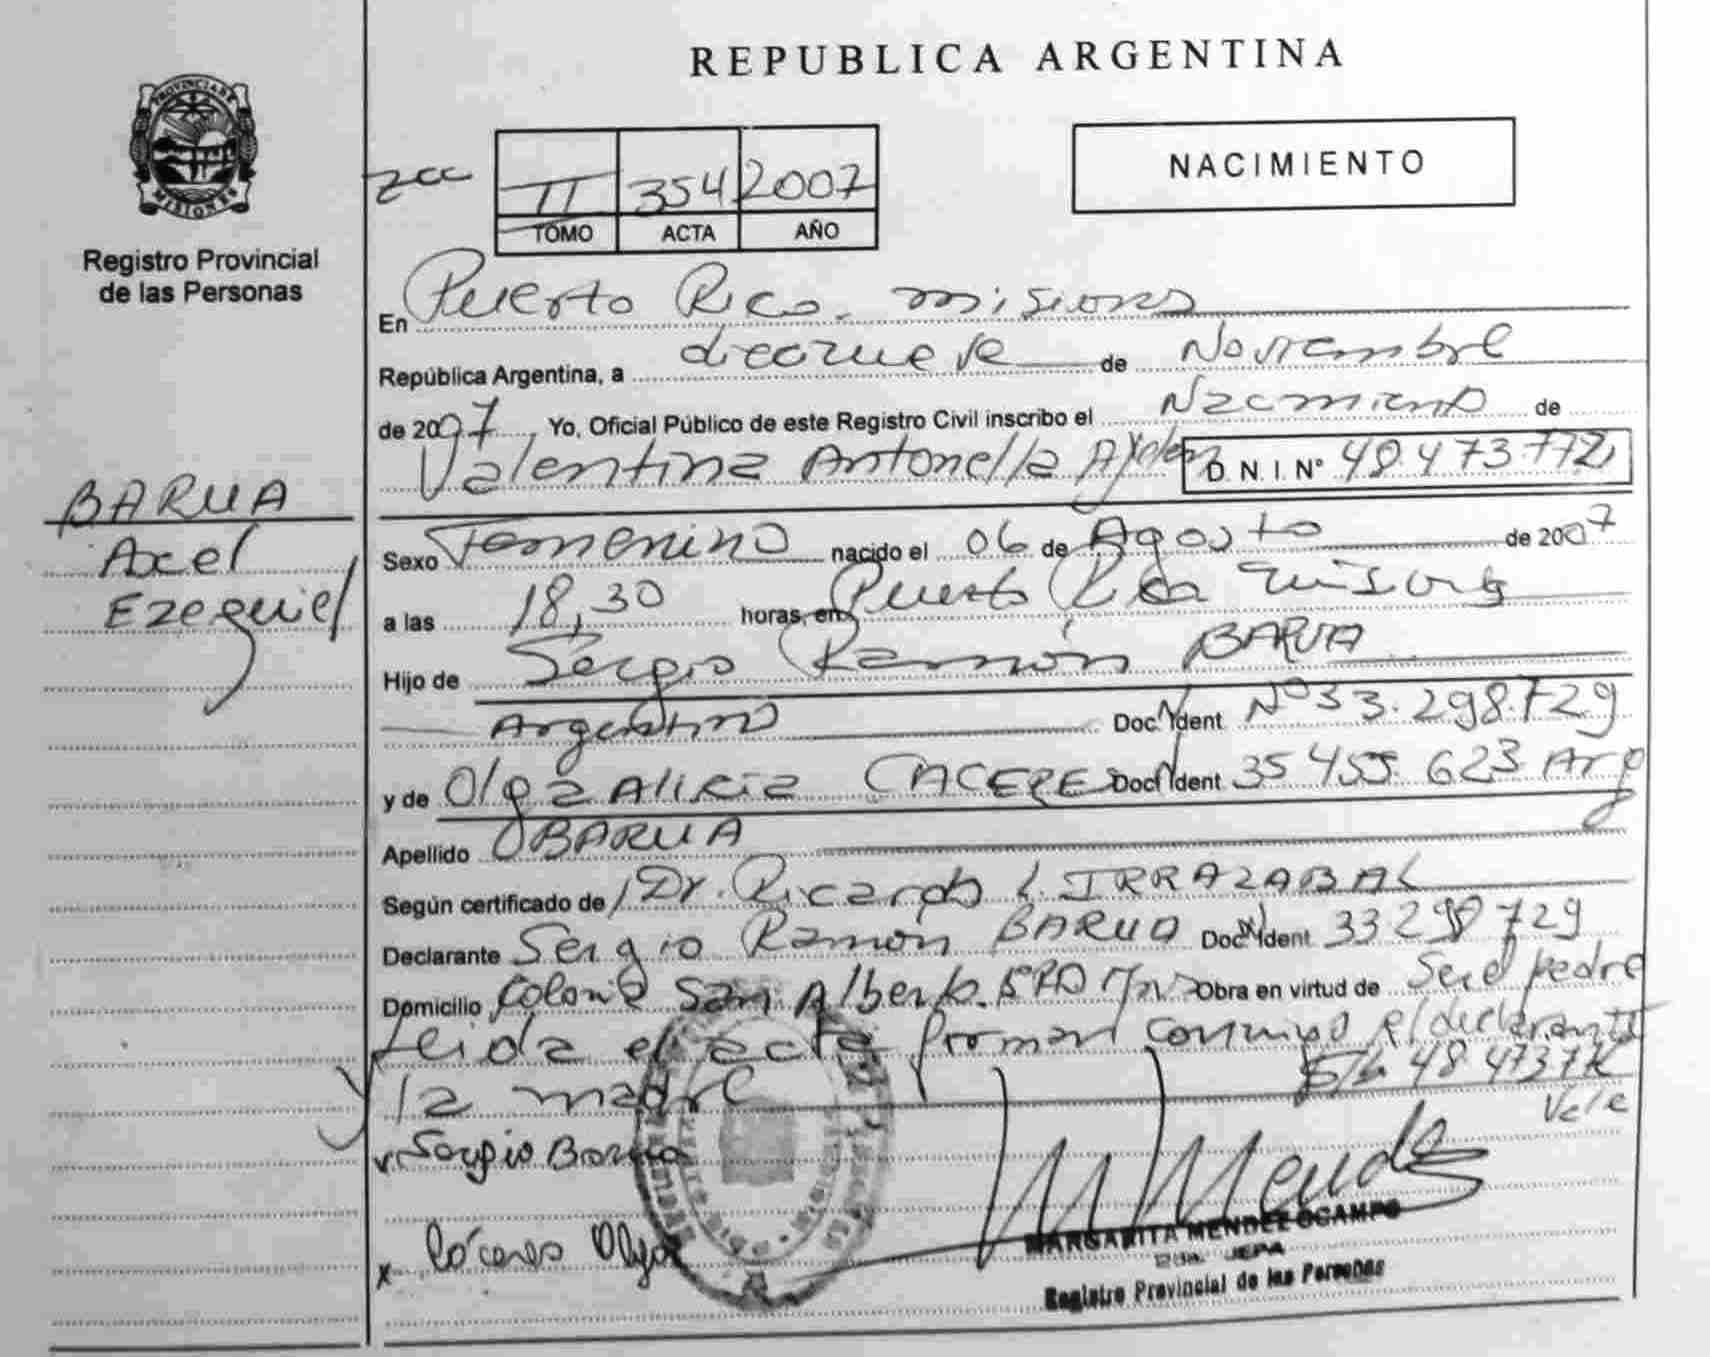 REPUBLICA ARGENTINA
PROVINCIA DE
MISIONES
Registro Provincial
de las Personas
II 354 2007
TOMO ACTA AÑO
NACIMIENTO
En Puerto Rico. misiones
República Argentina, a diecinueve de Noviembre
de 2007, Yo, Oficial Público de este Registro Civil inscribo el Nacimiento de
Valentina Antonella Aylen D. N. I. N° 48.473.772
BARUA
Axel
Ezequiel
Sexo Femenino nacido el 06 de Agosto de 2007
a las 18,30 horas, en Puerto Rico misiones
Hijo de Sergio Ramón BARUA
Argentino Doc. Ident N° 33.298.729
y de Olga Alicia CACERES Doc. Ident 35 455 623 Arg
Apellido BARUA
Según certificado de Dr. Ricardo L. IRRAZABAL
Declarante Sergio Ramón BARUA Doc. Ident 33 298 729
Domicilio Colonia San Alberto. Obra en virtud de Ser el padre
Leida el acta firman conmigo el declarante
y la madre
Vale
Sergio Barua
x Cáceres Olga
MARGARITA MENDEZ OCAMPO
JEFA
Registro Provincial de las Personas